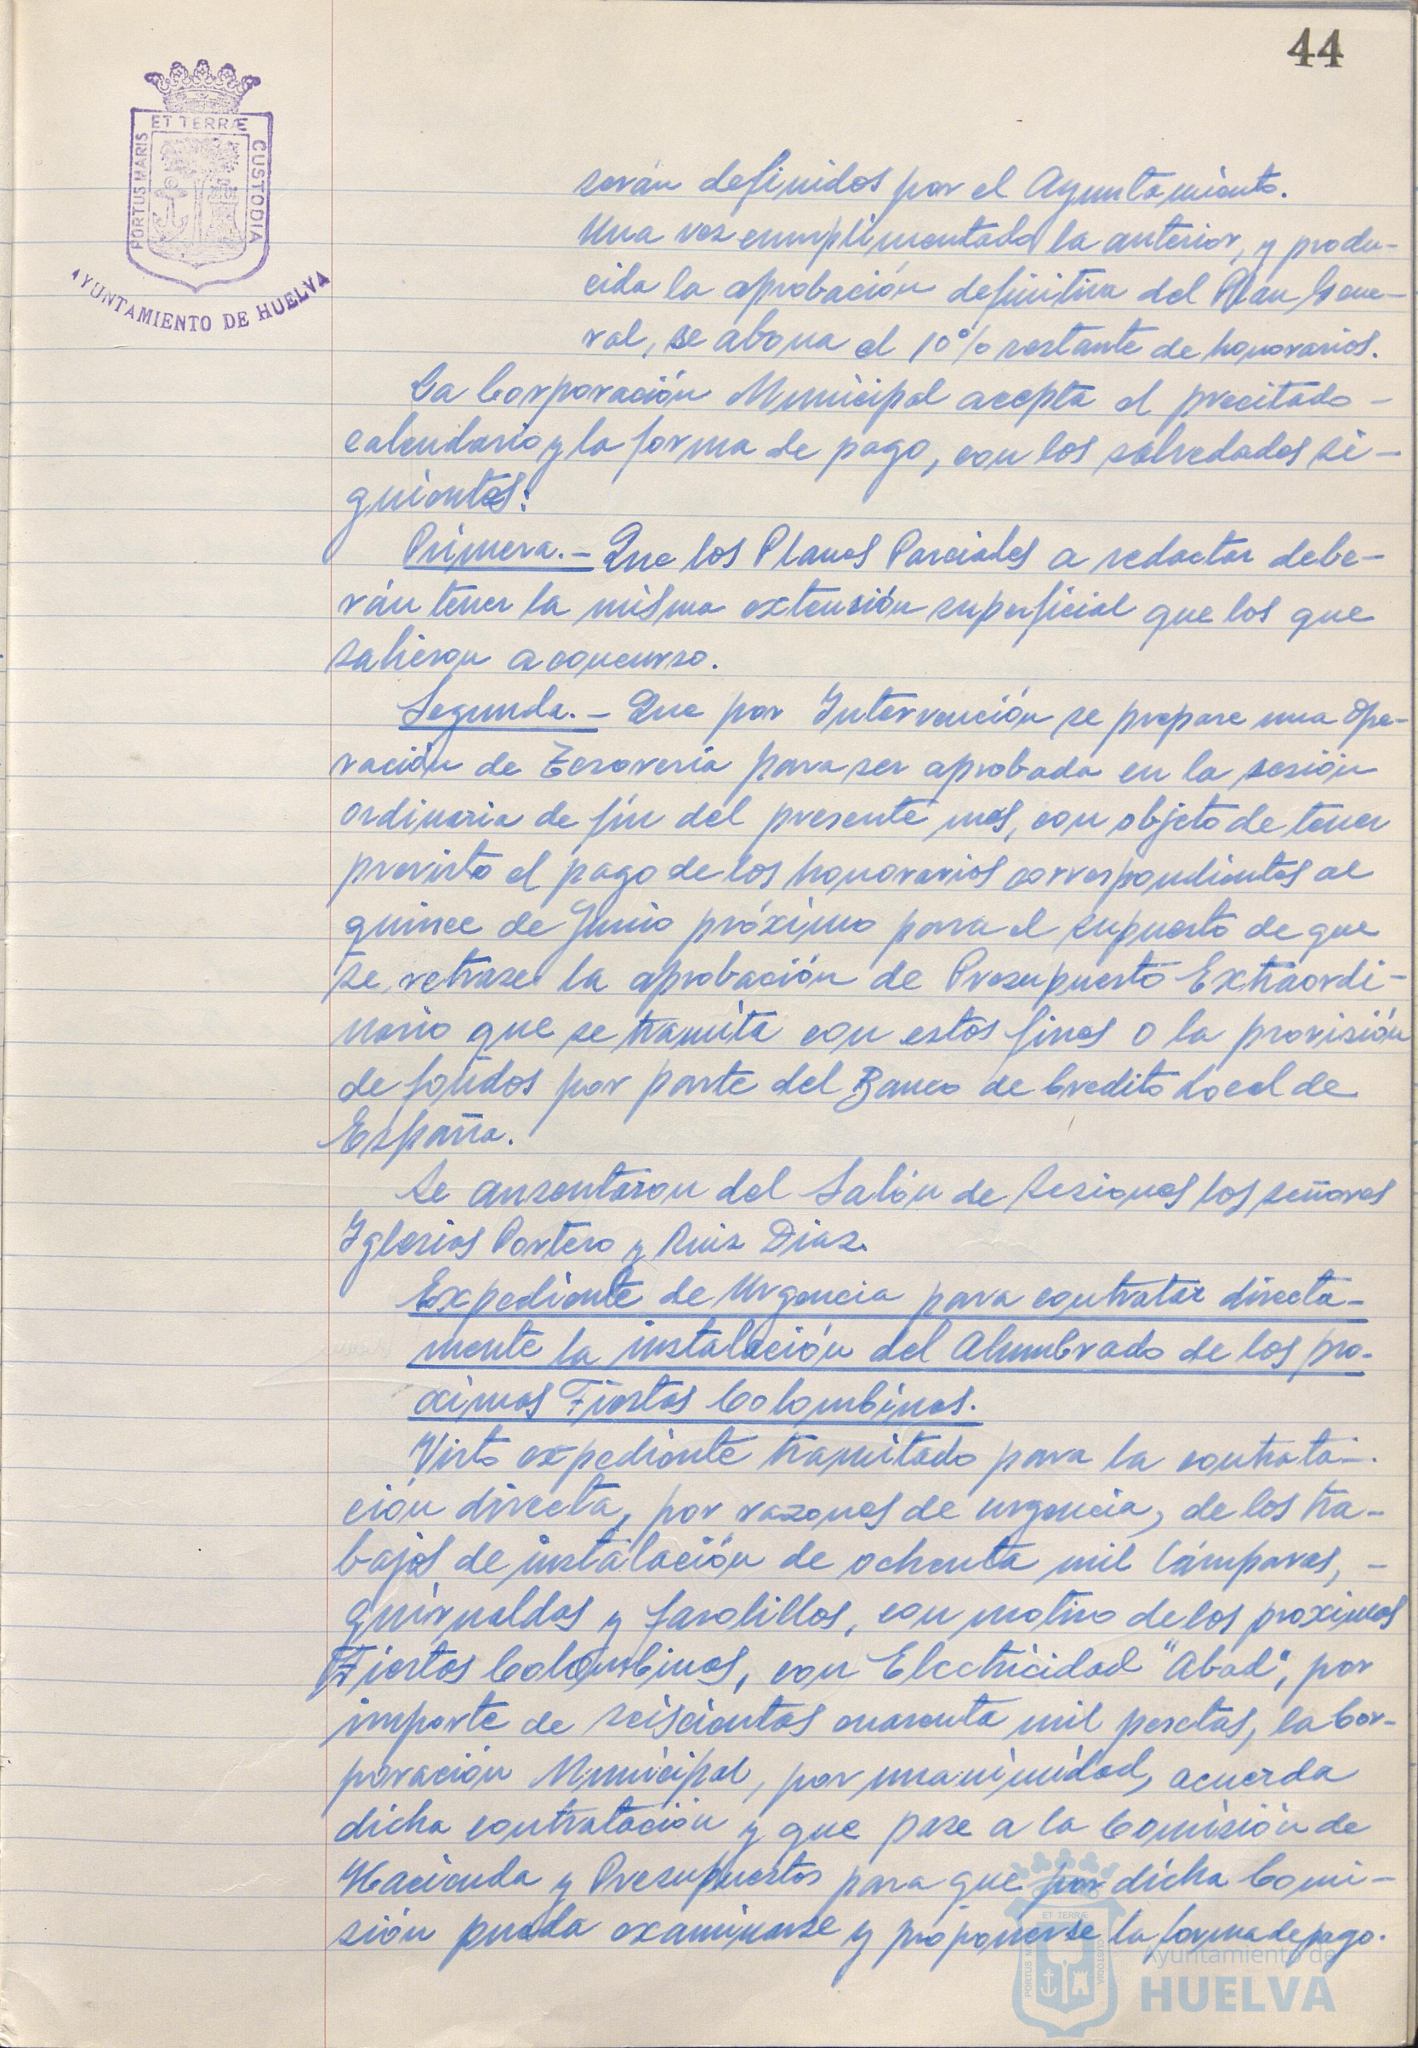 44
ET TERRÆ
PORTUS MARIS
CUSTODIA
AYUNTAMIENTO DE HUELVA
serán definidos por el Ayuntamiento.
Una vez cumplimentada la anterior, y produ-
cida la aprobación definitiva del Plan Gene-
ral, se abona el 10% restante de honorarios.
La Corporación Municipal acepta el precitado -
calendario y la forma de pago, con los salvedades si-
guientes:
Primera.- Que los Planes Parciales a redactar debe-
rán tener la misma extensión superficial que los que
salieron a concurso.
Segunda.- Que por Intervención se prepare una Ope-
ración de Tesorería para ser aprobada en la sesión
ordinaria de fin del presente mes, con objeto de tener
previsto el pago de los honorarios correspondientes al
quince de Junio próximo para el supuesto de que
se retrase la aprobación de Presupuesto Extraordi-
nario que se tramita con estos fines o la provisión
de fondos por parte del Banco de Credito Local de
España.
Se ausentaron del Salón de Sesiones los señores
Iglesias Portero y Ruiz Diaz.
Expediente de Urgencia para contratar directa-
mente la instalación del Alumbrado de los pro-
ximas Fiestas Colombinas.
Visto expediente tramitado para la contrata-
ción directa, por razones de urgencia, de los tra-
bajos de instalación de ochenta mil lámparas, -
guirnaldas y farolillos, con motivo de los proximas
Fiestas Colombinas, con Electricidad "Abad", por
importe de seiscientas cuarenta mil pesetas, la Cor-
poración Municipal, por unanimidad, acuerda
dicha contratación y que pase a la Comisión de
Hacienda y Presupuestos para que por dicha Comi-
sión pueda examinarse y proponerse la forma de pago.
ET TERRÆ
PORTUS MARIS
CUSTODIA
Ayuntamiento de
HUELVA